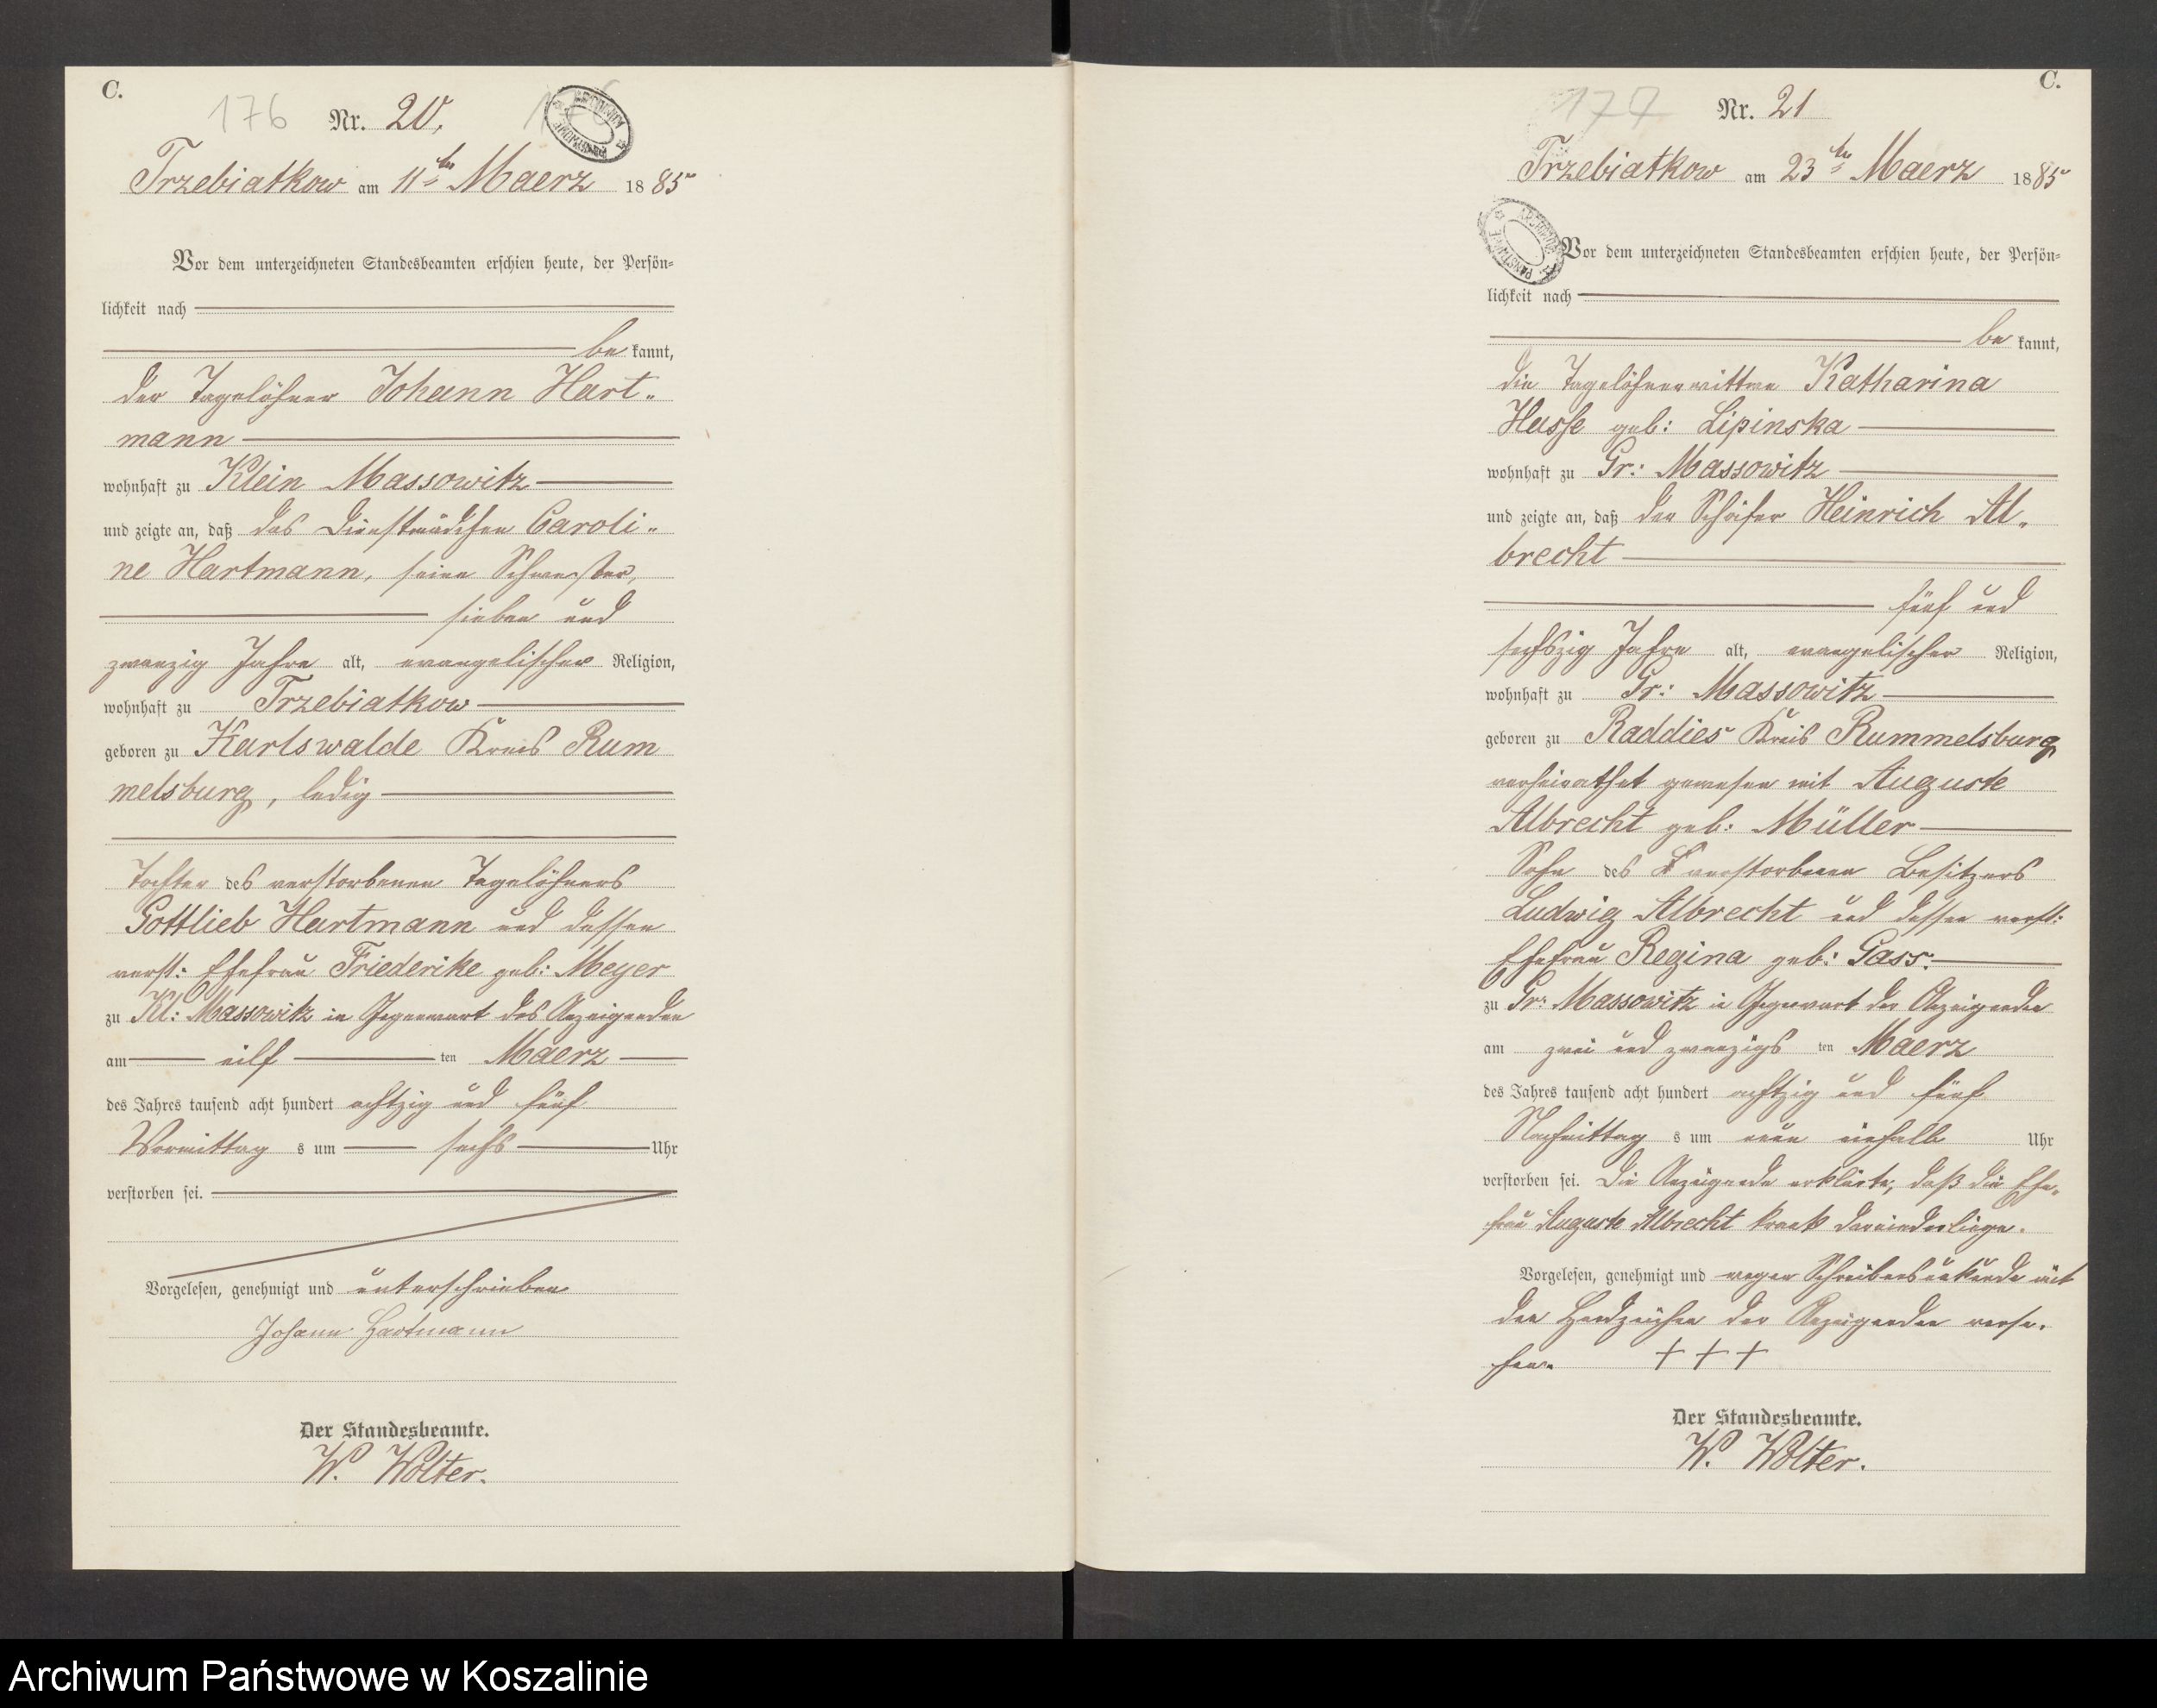 C.
176 Nr. 20.
Trzebiatkow am 11ten Maerz 1885
Vor dem unterzeichneten Standesbeamten erschien heute, der Persön=
lichkeit nach
be kannt,
der Tagelöhner Johann Hart=
mann
wohnhaft zu Klein Massowitz
und zeigte an, daß das Dienstmädchen Caroli=
ne Hartmann, seine Schwester,
sieben und
zwanzig Jahre alt, evangelischer Religion,
wohnhaft zu Trzebiatkow
geboren zu Karlswalde Kreis Rum
melsburg, ledig
Tochter des verstorbenen Tagelöhners
Gottlieb Hartmann und dessen
verst: Ehefrau Friederike geb: Meyer
zu Kl: Massowitz in Gegenwart des Anzeigenden
am eilf ten Maerz
des Jahres tausend acht hundert achtzig und fünf
Vormittag s um sechs Uhr
verstorben sei.
Vorgelesen, genehmigt und unterschrieben
Johann Hartmann
Der Standesbeamte.
W. Wolter.
C.
177 Nr. 21
Trzebiatkow am 23ten Maerz 1885
Vor dem unterzeichneten Standesbeamten erschien heute, der Persön=
lichkeit nach
be kannt,
die Tagelöhnerwittwe Katharina
Hasse geb: Lipinska
wohnhaft zu Gr: Massowitz
und zeigte an, daß der Schäfer Heinrich Al=
brecht
fünf und
sechszig Jahre alt, evangelischer Religion,
wohnhaft zu Gr: Massowitz
geboren zu Raddies Kreis Rummelsburg
verheirathet gewesen mit Auguste
Albrecht geb: Müller
Sohn des verstorbenen Besitzers
Ludwig Albrecht und dessen verst:
Ehefrau Regina geb: Gass.
zu Gr: Massowitz in Gegenwart der Anzeigenden
am zwei und zwanzigs ten Maerz
des Jahres tausend acht hundert achtzig und fünf
Nachmittag s um neun einhalb Uhr
verstorben sei. Die Anzeigende erklärte, daß die Ehe=
frau Auguste Albrecht krank darniederliege.
Vorgelesen, genehmigt und wegen Schreibensunkunde mit
den Handzeichen der Anzeigenden verse=
hen. + + +
Der Standesbeamte.
W. Wolter.
Archiwum Państwowe w Koszalinie